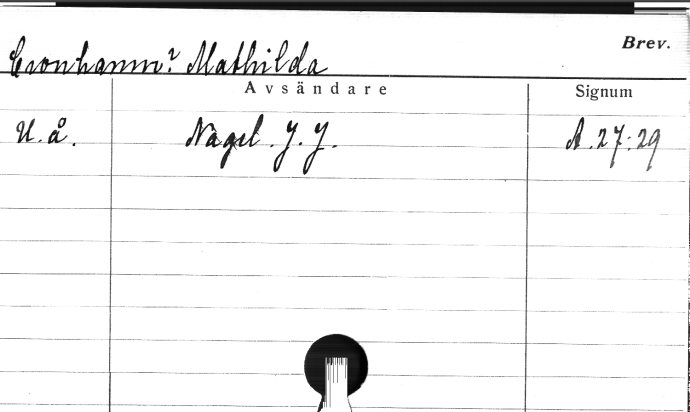 Brev.
Cronhamn? Mathilda
Avsändare Signum
U.å. Nagel. J. J. A.27:29